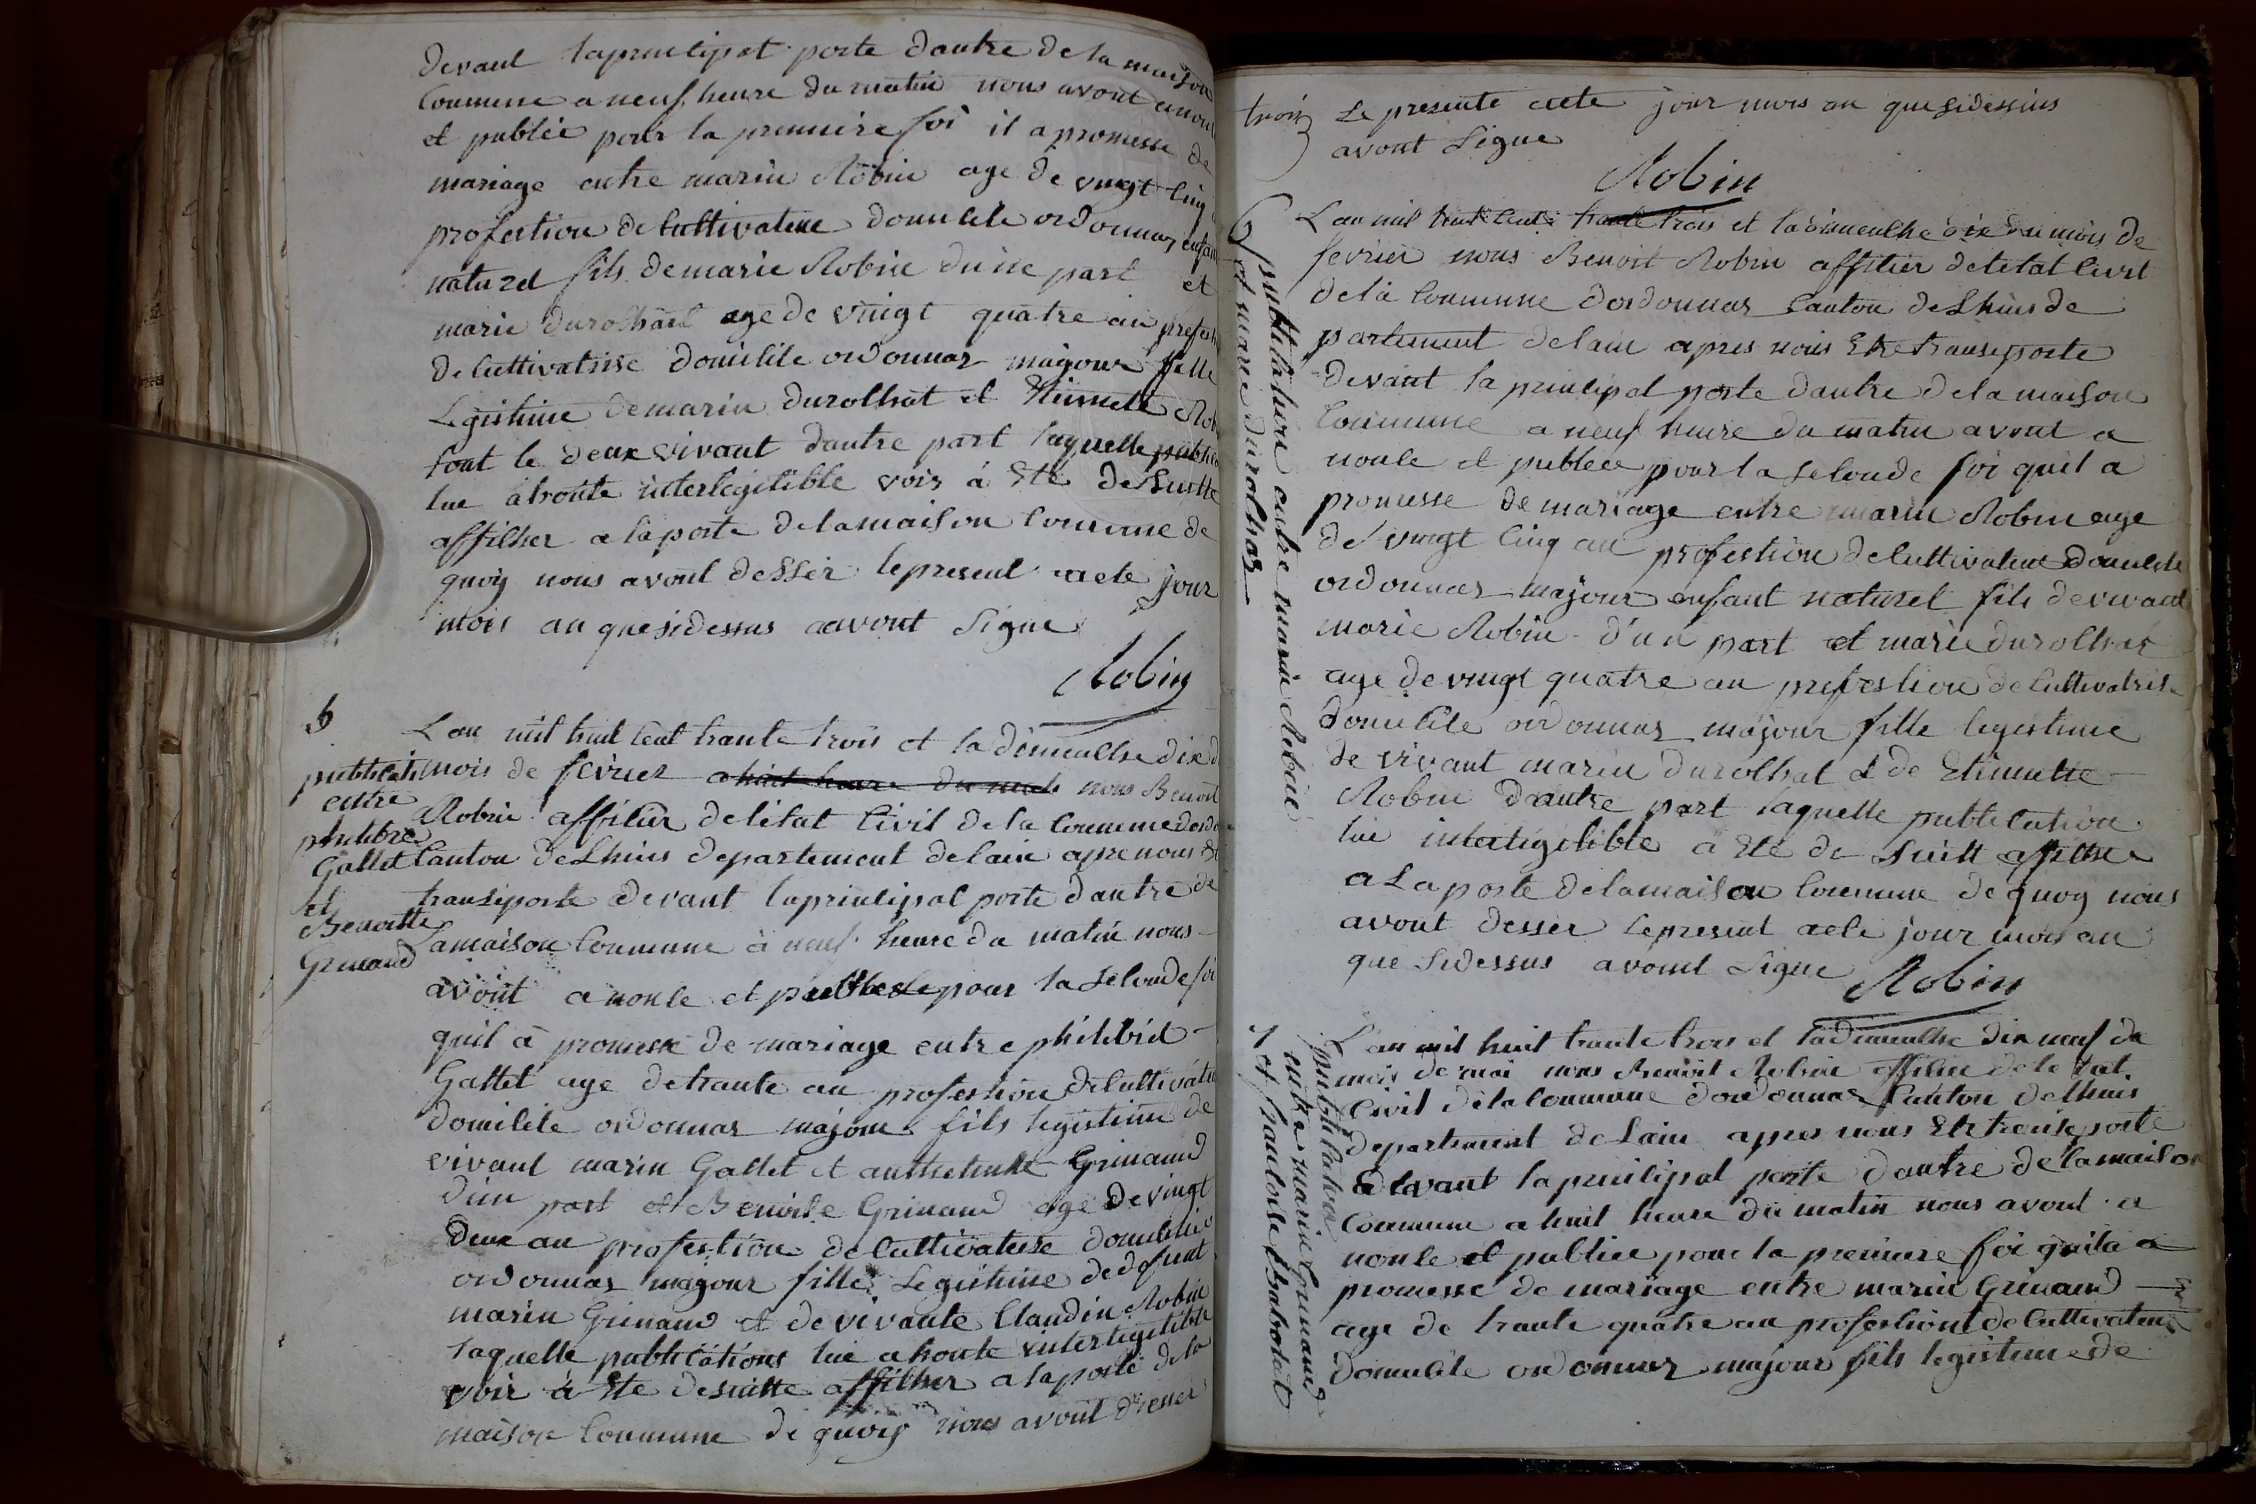 devant laprincipal porte dautre de la maison
Commune a neuf heure du matin nous avont anon
et publiée pour la premiere foi il a promesse de
mariage entre marin Robin age de vingt Cinq
profestion de Cultivateur domicile ordonnaz enfan
naturel fils de marie Robin dune part et
marie durochat age de vingt quatre an profes
de Cultivatrise domicile ordonnaz majour fille
Legistime de marin durochat et Etiennete Rob
sont le deux vivant dautre part laquelle public
lue ahoute interlegitible voix à Eté de Suitte
affiher a la porte de la maison Commune de
quoy nous avont desser le present acte jour
mois an que sidessus avont Signe
Robin
5
publicati
entre
philibre
Gallet
et
Benoitte
Grinand
L'an mil huit Cent trante trois et la dimenche dix d
mois de fevrier a huit heure du mati nous Benoit
Robin affisier de letat Civil de la Commune dordo
Canton de Lhuis departement de lain apre nous Et
transeporte devant laprincipal porte dautre de
Lamaison Commune à neuf heure du matin nous
avont anonce et publiee pour la Seconde foi
quil à promesse de mariage entre philibert
Gallet age de trante an profestion de Cultivateu
domicile ordonnaz majour fils legistime de
vivant marin Gallet et anthelmette Grinand
d'un part et Benoite Grinand age de vingt
deux an profestion de Cultivateuse domicilie
ordonnaz majour fille Legistime de defunt
marin Grinand et de vivante Claudin Robin
laquelle publications lue ahoute interlegitible
voix à Ete de suitte affiher a la porte de la
maison Commune de quoy nous avont dresser
trois Le presente acte jour mois an que sidessus
avont Signe
Robin
6 publication entre marin Robin
et marie durochaz
L'an mil huit Cent trante trois et la dimenche dix du mois de
fevrier nous Benoit Robin affisier de letat Civil
de la Commune dordonnaz Canton de Lhuis de
partement de lain apres nous Etre transeporte
devant la principal porte dautre de la maison
Commune a neuf heure du matin avont a
nonce et publiee pour la Seconde foi quil a
promesse de mariage entre marin Robin age
de vingt Cinq an profestion de Cultivateur domicile
ordonnaz majour enfant naturel fils de vivant
marie Robin d'un part et marie durochat
age de vingt quatre an profestion de Cultivatrise
domicile ordonnaz majour fille legistime
de vivant marin durochat et de Etinnette
Robin dautre part laquelle publication
lue interligitible à Ete de suitt affiher
a La porte de lamaison Commune de quoy nous
avont desser le present acte jour mois an
que sidessus avont Signe
Robin
7 publication
entre marin Grinand
et francoise Babolat
L'an mil huit trante trois et la dimenche dix neuf du
mois de mai nous Benoit Robin affisier de le tat
Civil de la Commune dordonnaz Canton de Lhuis
departement de Lain apres nous Etre transeporte
devant la principal porte dautre de lamaison
Commune a huit heure du matin nous avont a
nonce et publiee pour la premiere foi quila a
promesse de mariage entre marin Grinand
age de trante quatre an profestiont de Cultivateur
domicile ordonnaz majour fils legistime de